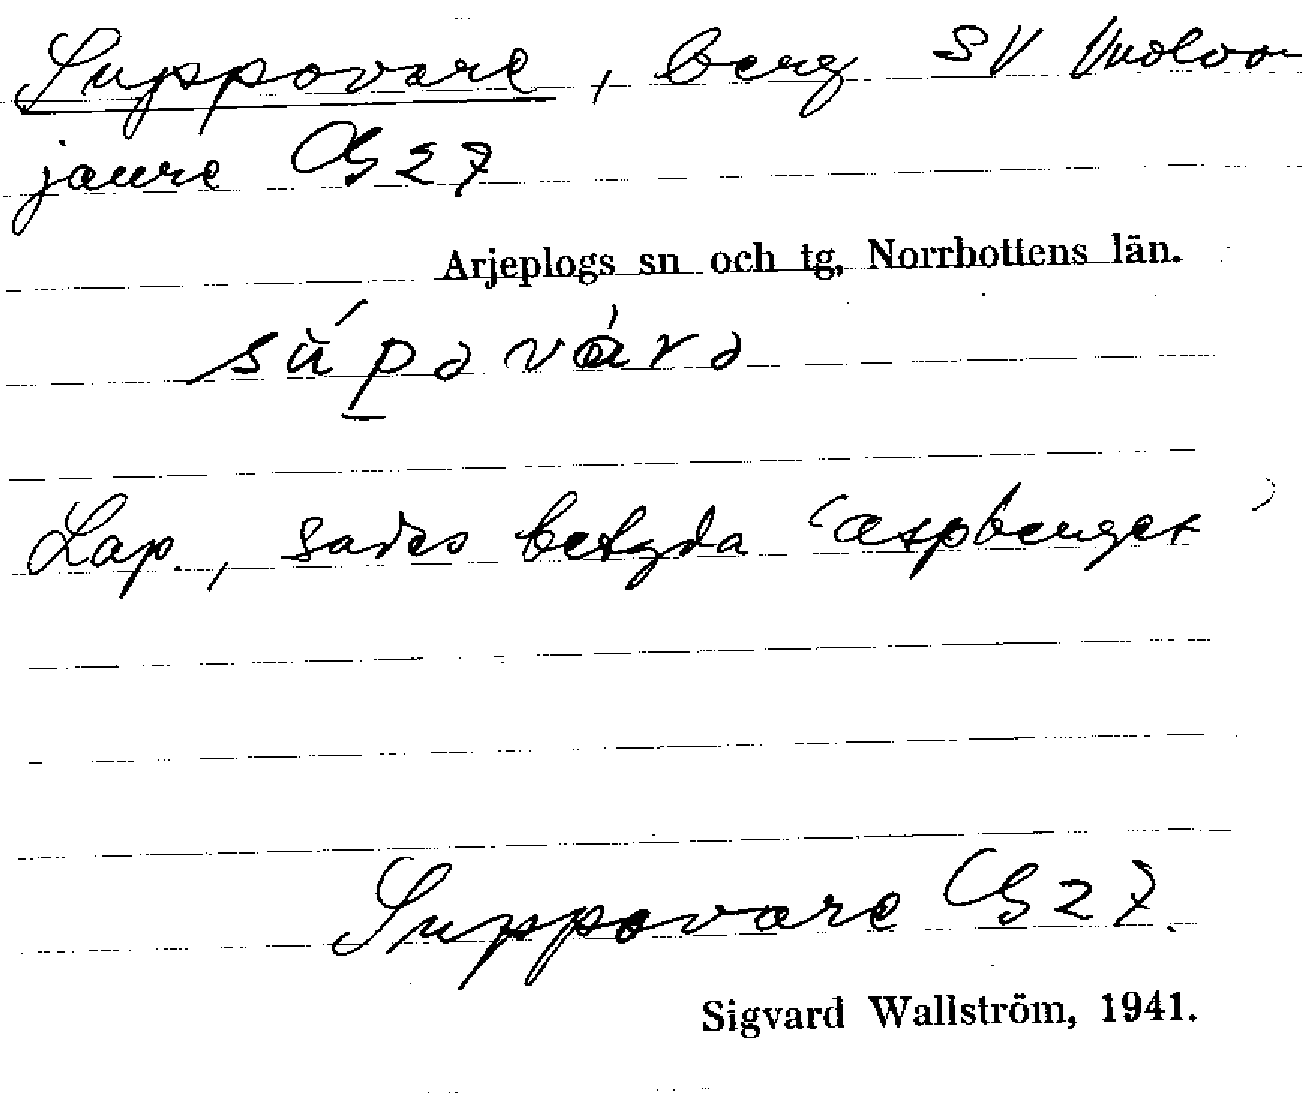 Suppovare, berg SV Vuolvo-
jaure GS 27
Arjeplogs sn och tg, Norrbottens län.
sú̆pəvárə
Lap., sades betyda 'aspberget'
Suppovare GS 27.
Sigvard Wallström, 1941.